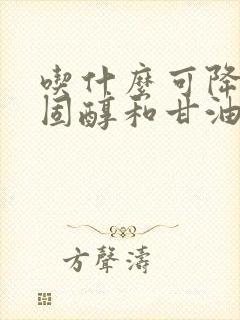 喫什麼可降
固醇和甘油
方聲濤